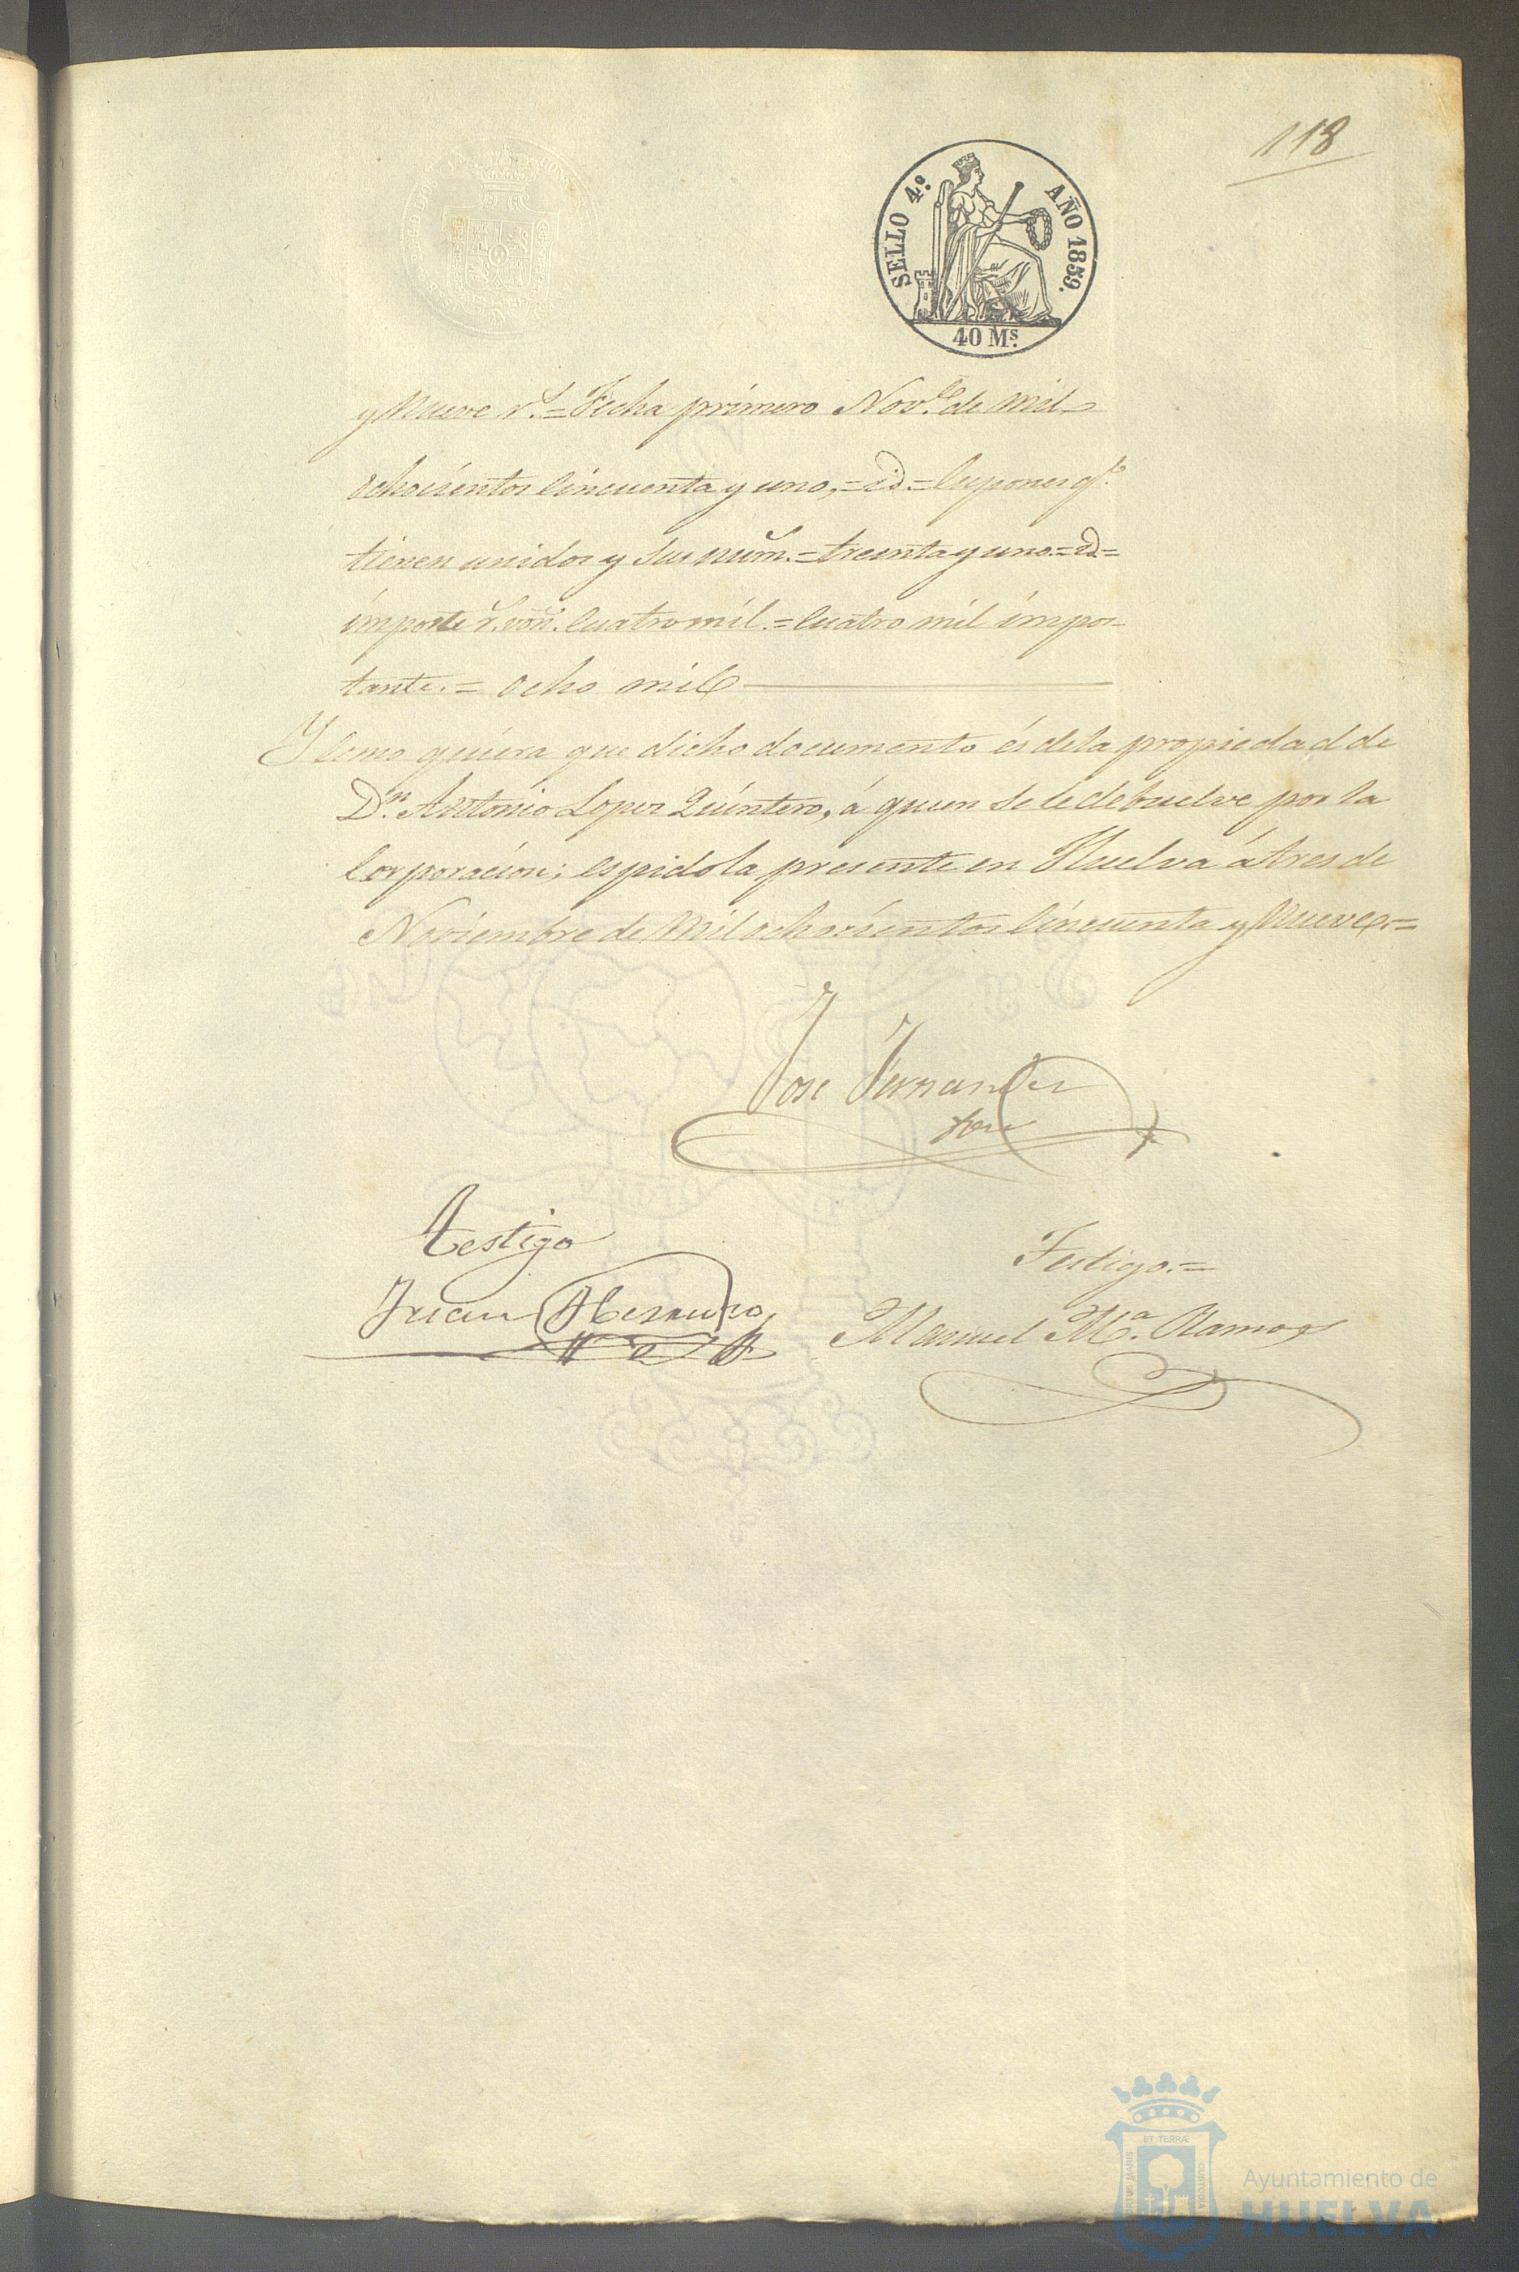 118
SELLO 4º AÑO 1859.
40 Mˢ.
y Nueve r.ˢ = Fecha primero Nov.ᵉ de mil
ochocientos Cincuenta y uno, = id = Cupones q.ᵉ
tienen unidos y sus num. = treinta y uno = id =
importe r.ˢ von. Cuatro mil. = Cuatro mil impor-
tante. = Ocho mil
Y como quiera que dicho documento és dela propiedad de
D.ⁿ Antonio Lopez Quintero, á quien se le debuelve por la
Corporación; espido la presente en Huelva á tres de
Noviembre de Mil ochocientos Cincuenta y Nueve. =
José Fernandez
Testigo
Testigo. =
Juan
Manuel M.ᵃ Ramos
ET TERRÆ
PORTUS MARIS
CUSTODIA
Ayuntamiento de
HUELVA